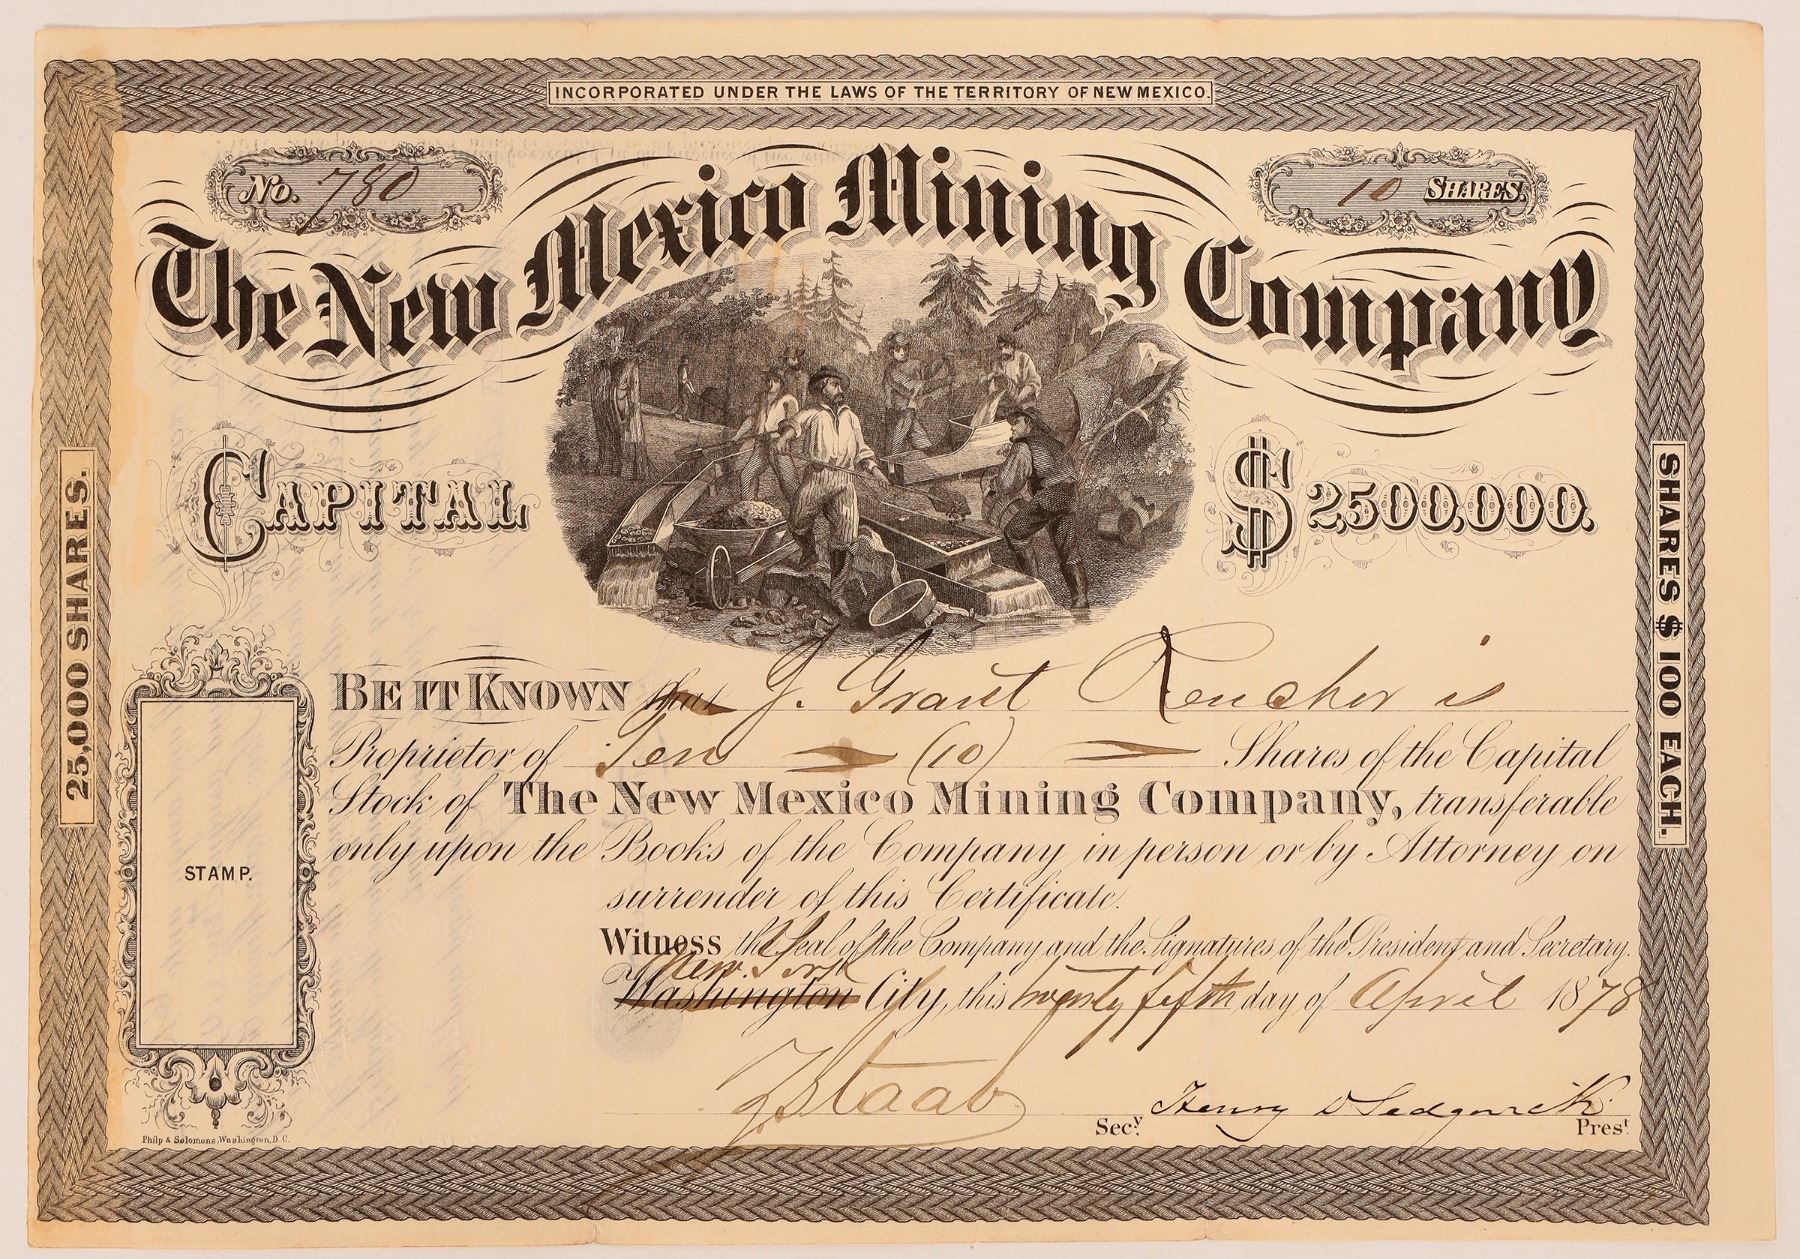 INCORPORATED UNDER THE LAWS OF THE TERRITORY OF NEW MEXICO.
No. 780
10 SHARES.
The New Mexico Mining Company
CAPITAL $2,500,000.
25,000 SHARES.
SHARES $100 EACH.
BE IT KNOWN that J. Grant Rencher is
Proprietor of Ten (10) Shares of the Capital
Stock of The New Mexico Mining Company, transferable
only upon the Books of the Company in person or by Attorney on
surrender of this Certificate.
Witness the Seal of the Company and the Signatures of the President and Secretary.
New York
Washington City, this twenty fifth day of April 1878
STAMP.
Z Staab Secy.
Henry D Sedgwick Prest.
Philp & Solomons, Washington, D.C.